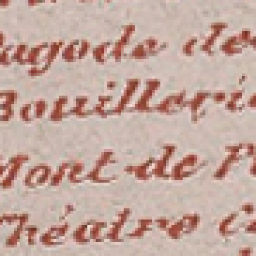 Pagode de
Bouillerie
Mont-de-P
Théatre